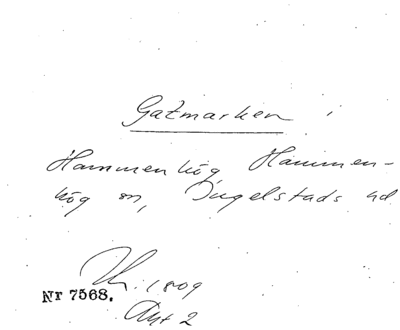 Gatmarken i
Hammenhög Hammen-
hög sn, Ingelstads hd
1809
Nr 7568.
Akt 2